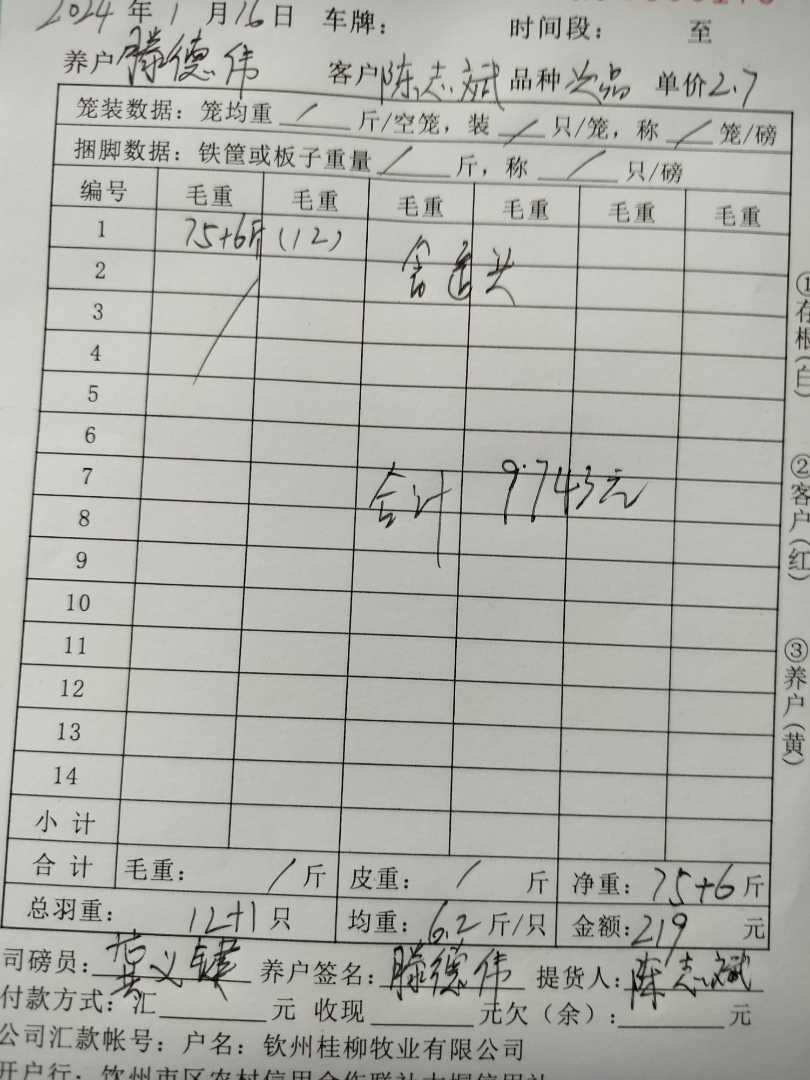 2024年1月16日 车牌： 时间段： 至
养户滕德伟 客户陈志斌 品种次品 单价2.7
笼装数据：笼均重 / 斤/空笼，装 / 只/笼，称 / 笼/磅
捆脚数据：铁筐或板子重量 / 斤，称 / 只/磅
编号 毛重 毛重 毛重 毛重 毛重 毛重
1 75+6斤(12)
2
3
4
5
6
7
合计 9743元
8
9
10
11
12
13
14
小计
合计 毛重： / 斤 皮重： / 斤 净重：75+6斤
总羽重： 12+1只 均重：6.2斤/只 金额：219元
司磅员： 养户签名：滕德伟 提货人：陈志斌
付款方式：汇 元 收现 元欠（余）： 元
公司汇款帐号：户名：钦州桂柳牧业有限公司
开户行：钦州市区农村信用合作联社大垌信用社
①存根（白）
②客户（红）
③养户（黄）